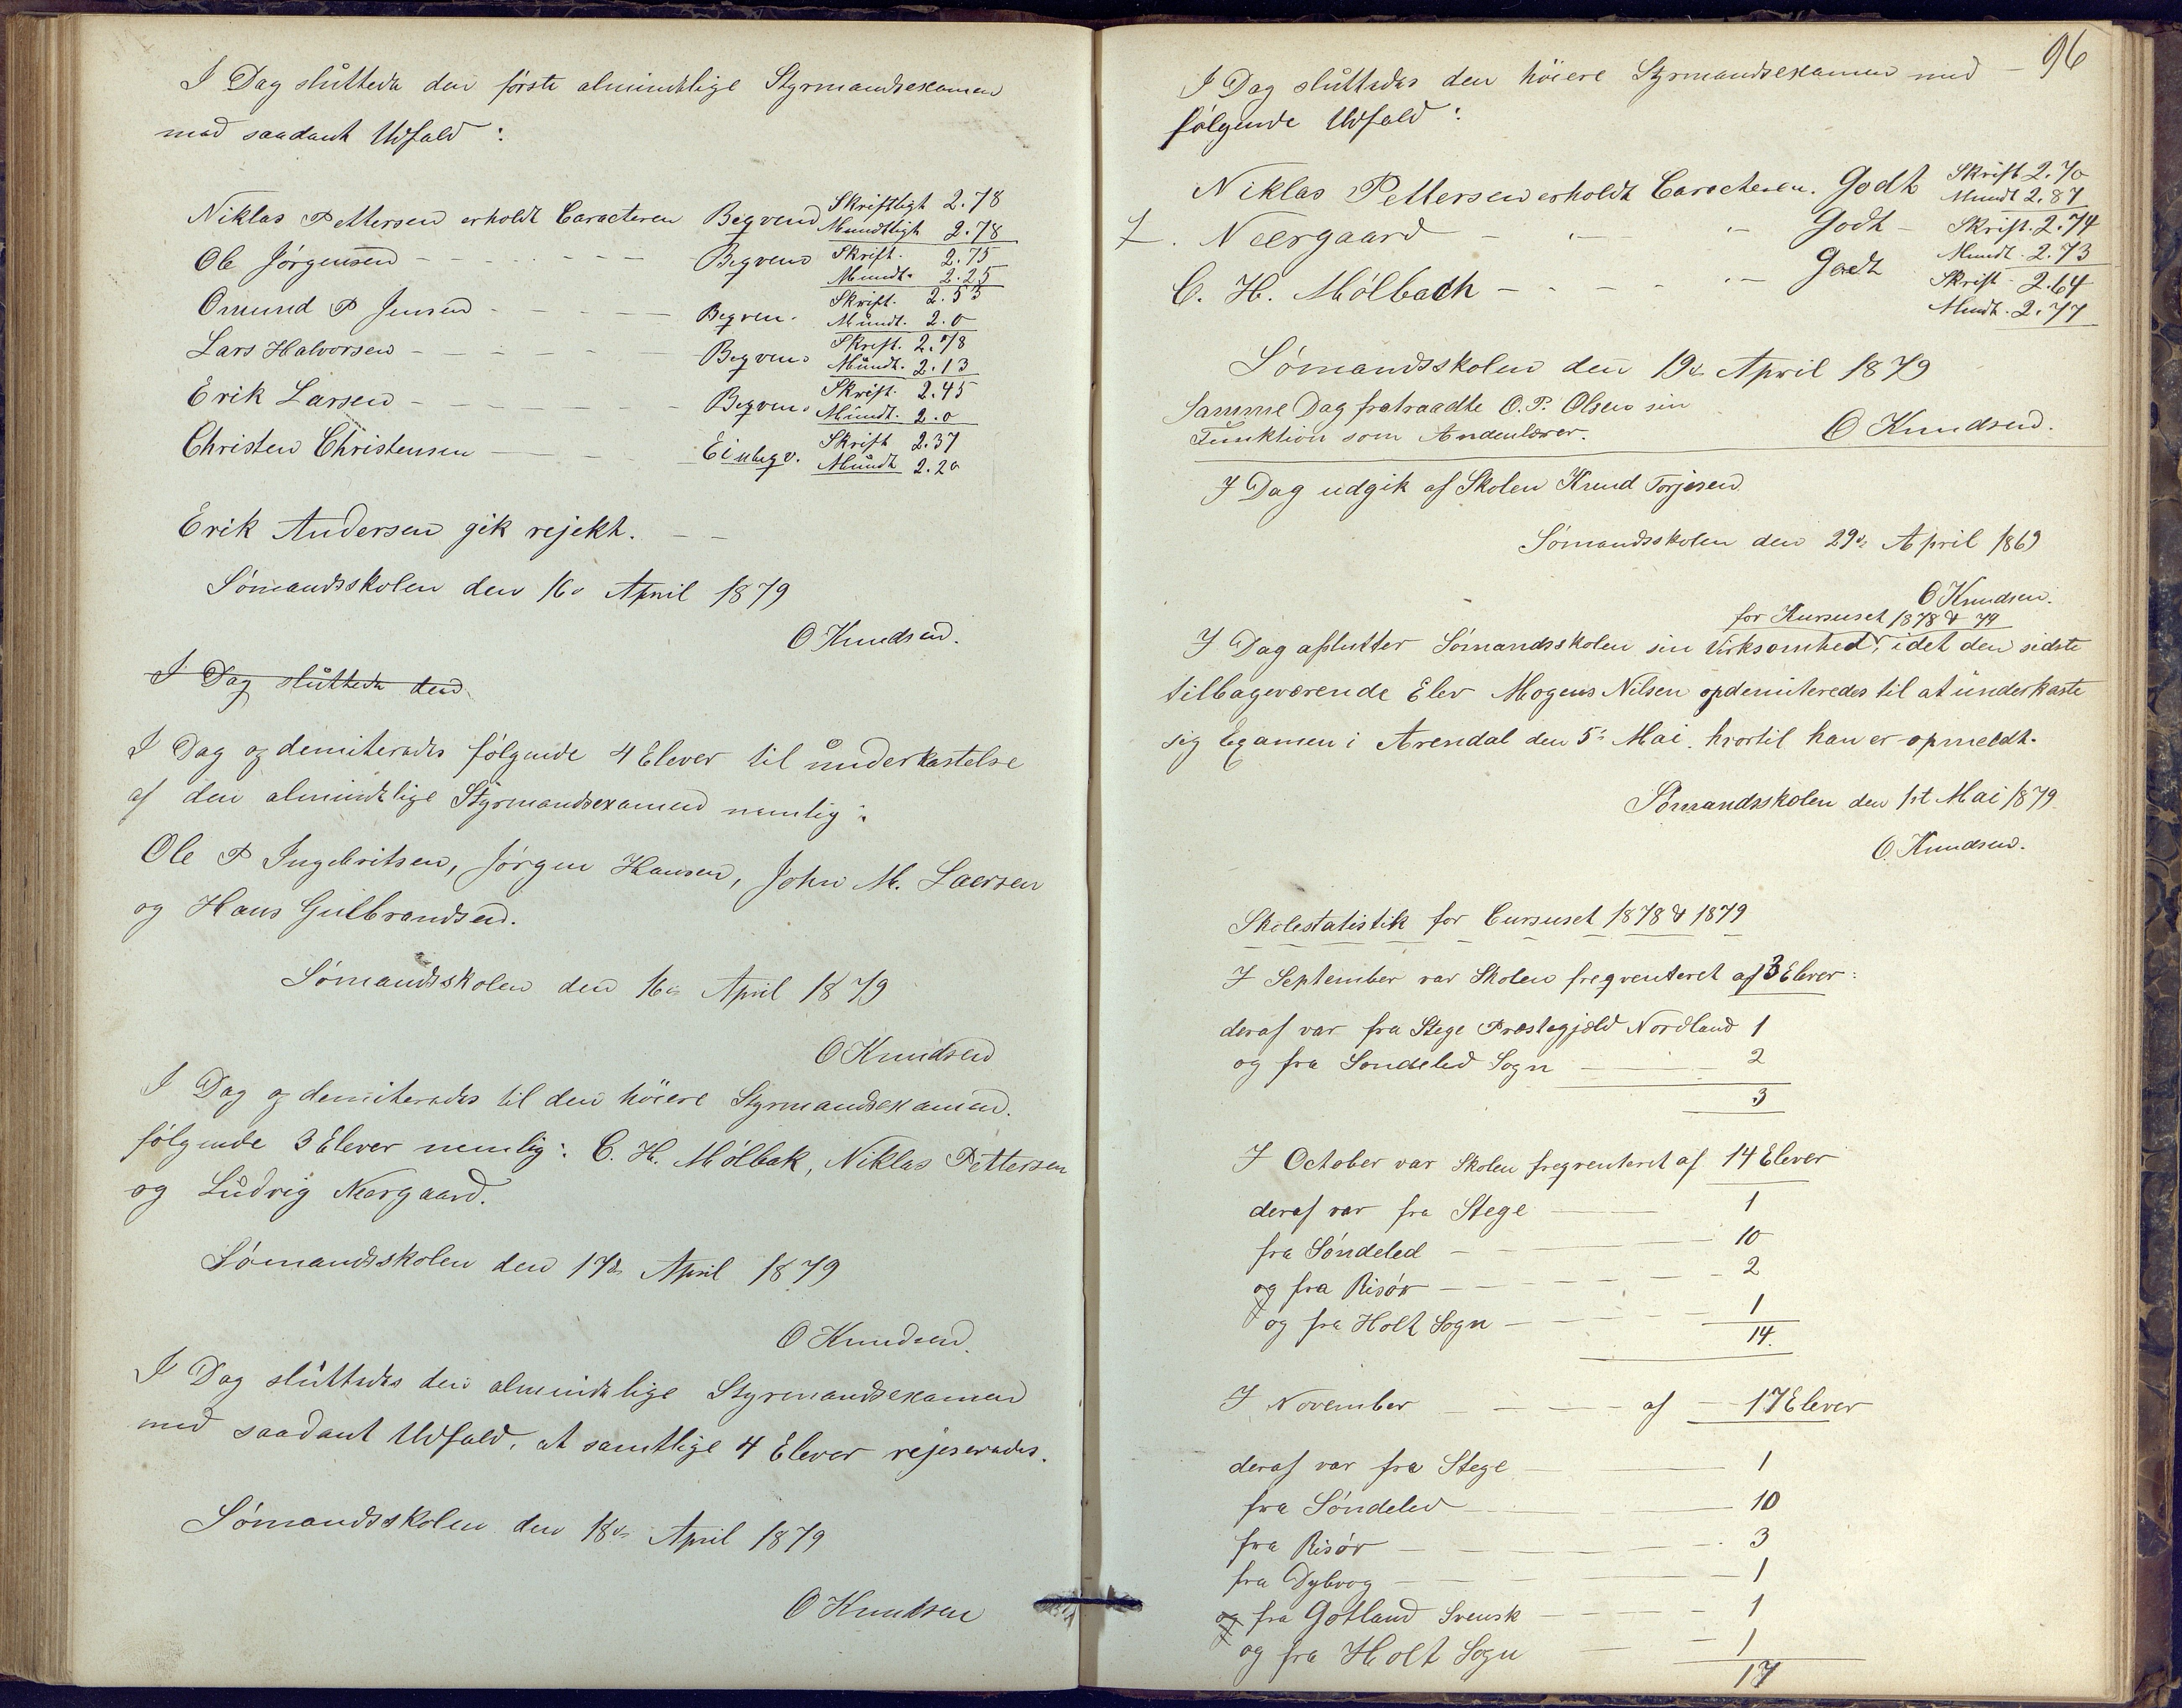 I Dag sluttede den første almindelige Styrmandsexamen
med saadant Udfald:
Niklas Pettersen erholdt Caracteren Begvem Skriftligt 2.78
Mundtligt 2.78
Ole Jørgensen - - - - - - - Begvem Skrift. 2.75
Mundt. 2.25
Omund P Jensen - - - - - Begvem. Skrift. 2.53
Mundt. 2.0
Lars Halvorsen - - - - - - Begvem. Skrift. 2.78
Mundt. 2.13
Erik Larsen - - - - - - Begvem. Skrift. 2.45
Mundt. 2.0
Christen Christensen - - - Ei ubegv. Skrift 2.37
Mundt 2.20
Erik Andersen gik rejekt. - -
Sømandsskolen den 16de April 1879
O Knudsen.
I Dag sluttede den
I Dag opdemiteredes følgende 4 Elever til underkastelse
af den almindelige Styrmandsexamen nemlig:
Ole P Ingebritsen, Jørgen Hansen, John M. Laersen
og Hans Gulbrandsen.
Sømandsskolen den 16de April 1879
O Knudsen
I Dag opdemiteredes til den höiere Styrmandsexamen.
følgende 3 Elever nemlig: C. H. Mølbak, Niklas Pettersen
og Ludvig Neergaard.
Sømandsskolen den 17de April 1879
O Knudsen.
I Dag sluttedes den almindelige Styrmandsexamen
med saadant Udfald, at samtlige 4 Elever rejeseredes.
Sømandsskolen den 18de April 1879
O Knudsen
96
I Dag sluttedes den höiere Styrmandsexamen med -
følgende Udfald:
Niklas Pettersen erholdt Caracteren. Godt Skrift 2.70
Mundt 2.87
L. Neergaard - - - Godt - Skrift. 2.74
Mundt. 2.73
C. H. Mølbach - - - - - Godt Skrift - 2.64
Mundt. 2.77
Sømandsskolen den 19de April 1879
Samme Dag fratraadte O. P. Olsen sin
Funktion som Andenlærer.
O Knudsen.
I Dag udgik af Skolen Knud Torjesen
Sømandsskolen den 29de April 1869
O Knudsen.
for Kursuset 1878 & 79
I Dag aflutter Sømandsskolen sin Virksomhed, idet den sidste
tilbageværende Elev Mogens Nilsen opdemiteredes til at underkaste
sig Examen i Arendal den 5te Mai. hvortil han er opmeldt.
Sømandsskolen den 1st Mai 1879
O. Knudsen.
Skolestatistik for Cursuset 1878 & 1879
I September var Skolen freqventeret af 3 Elever:
deraf var fra Stege Præstegjeld Nordland 1
og fra Søndeled Sogn - - 2
3
I October var Skolen freqventeret af 14 Elever
deraf var fra Stege - - 1
fra Søndeled - - - 10
og fra Risør - - - - - - 2
og fra Holt Sogn - - - - 1
14.
I November - - - - af - 17 Elever
deraf var fra Stege - - 1
fra Søndeled - - - 10
fra Risør - - - - 3
fra Dybvog - - - - 1
og fra Gotland Svensk - - - 1
og fra Holt Sogn - - 1
17